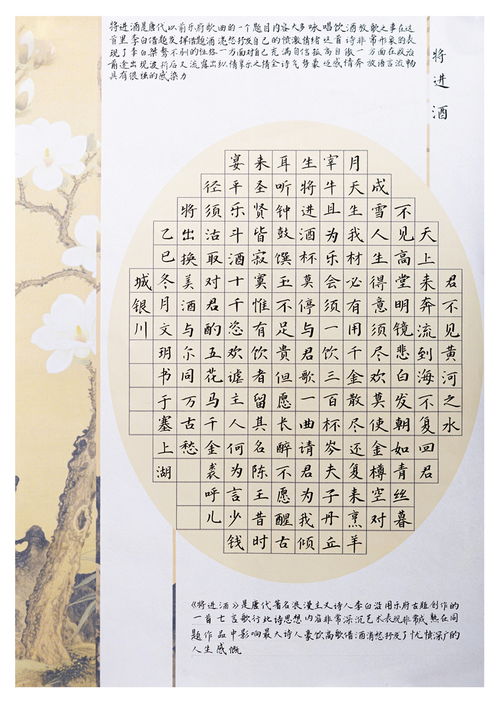 将进酒是唐代以前乐府歌曲的一个题目内容大多咏唱饮酒放歌之事在这
首里李白借题发挥借酒浇愁抒发自己的愤激情绪这首诗非常形象的表
现了李白桀骜不驯的性格一方面对自己充满自信孤高自傲一方面在政治
前途出现波折后又流露出纵情享乐之情全诗气势豪迈感情奔放语言流畅
具有很强的感染力
将进酒
君不见黄河之水
天上来奔流到海不复回君
不见高堂明镜悲白发朝如青丝暮
成雪人生得意须尽欢莫使金樽空对
月天生我材必有用千金散尽还复来烹羊
宰牛且为乐会须一饮三百杯岑夫子丹丘
生将进酒杯莫停与君歌一曲请君为我倾
耳听钟鼓馔玉不足贵但愿长醉不愿醒古
来圣贤皆寂寞惟有饮者留其名陈王昔时
宴平乐斗酒十千恣欢谑主人何为言少钱
径须沽取对君酌五花马千金裘呼儿
将出换美酒与尔同万古愁
乙巳冬月文玥书于塞上湖
城银川
《将进酒》是唐代著名浪漫主义诗人李白沿用乐府古题创作的
一首七言歌行此诗思想内容非常深沉艺术表现非常成熟在同
题作品中影响最大诗人豪饮高歌借酒消愁抒发了忧愤深广的
人生感慨